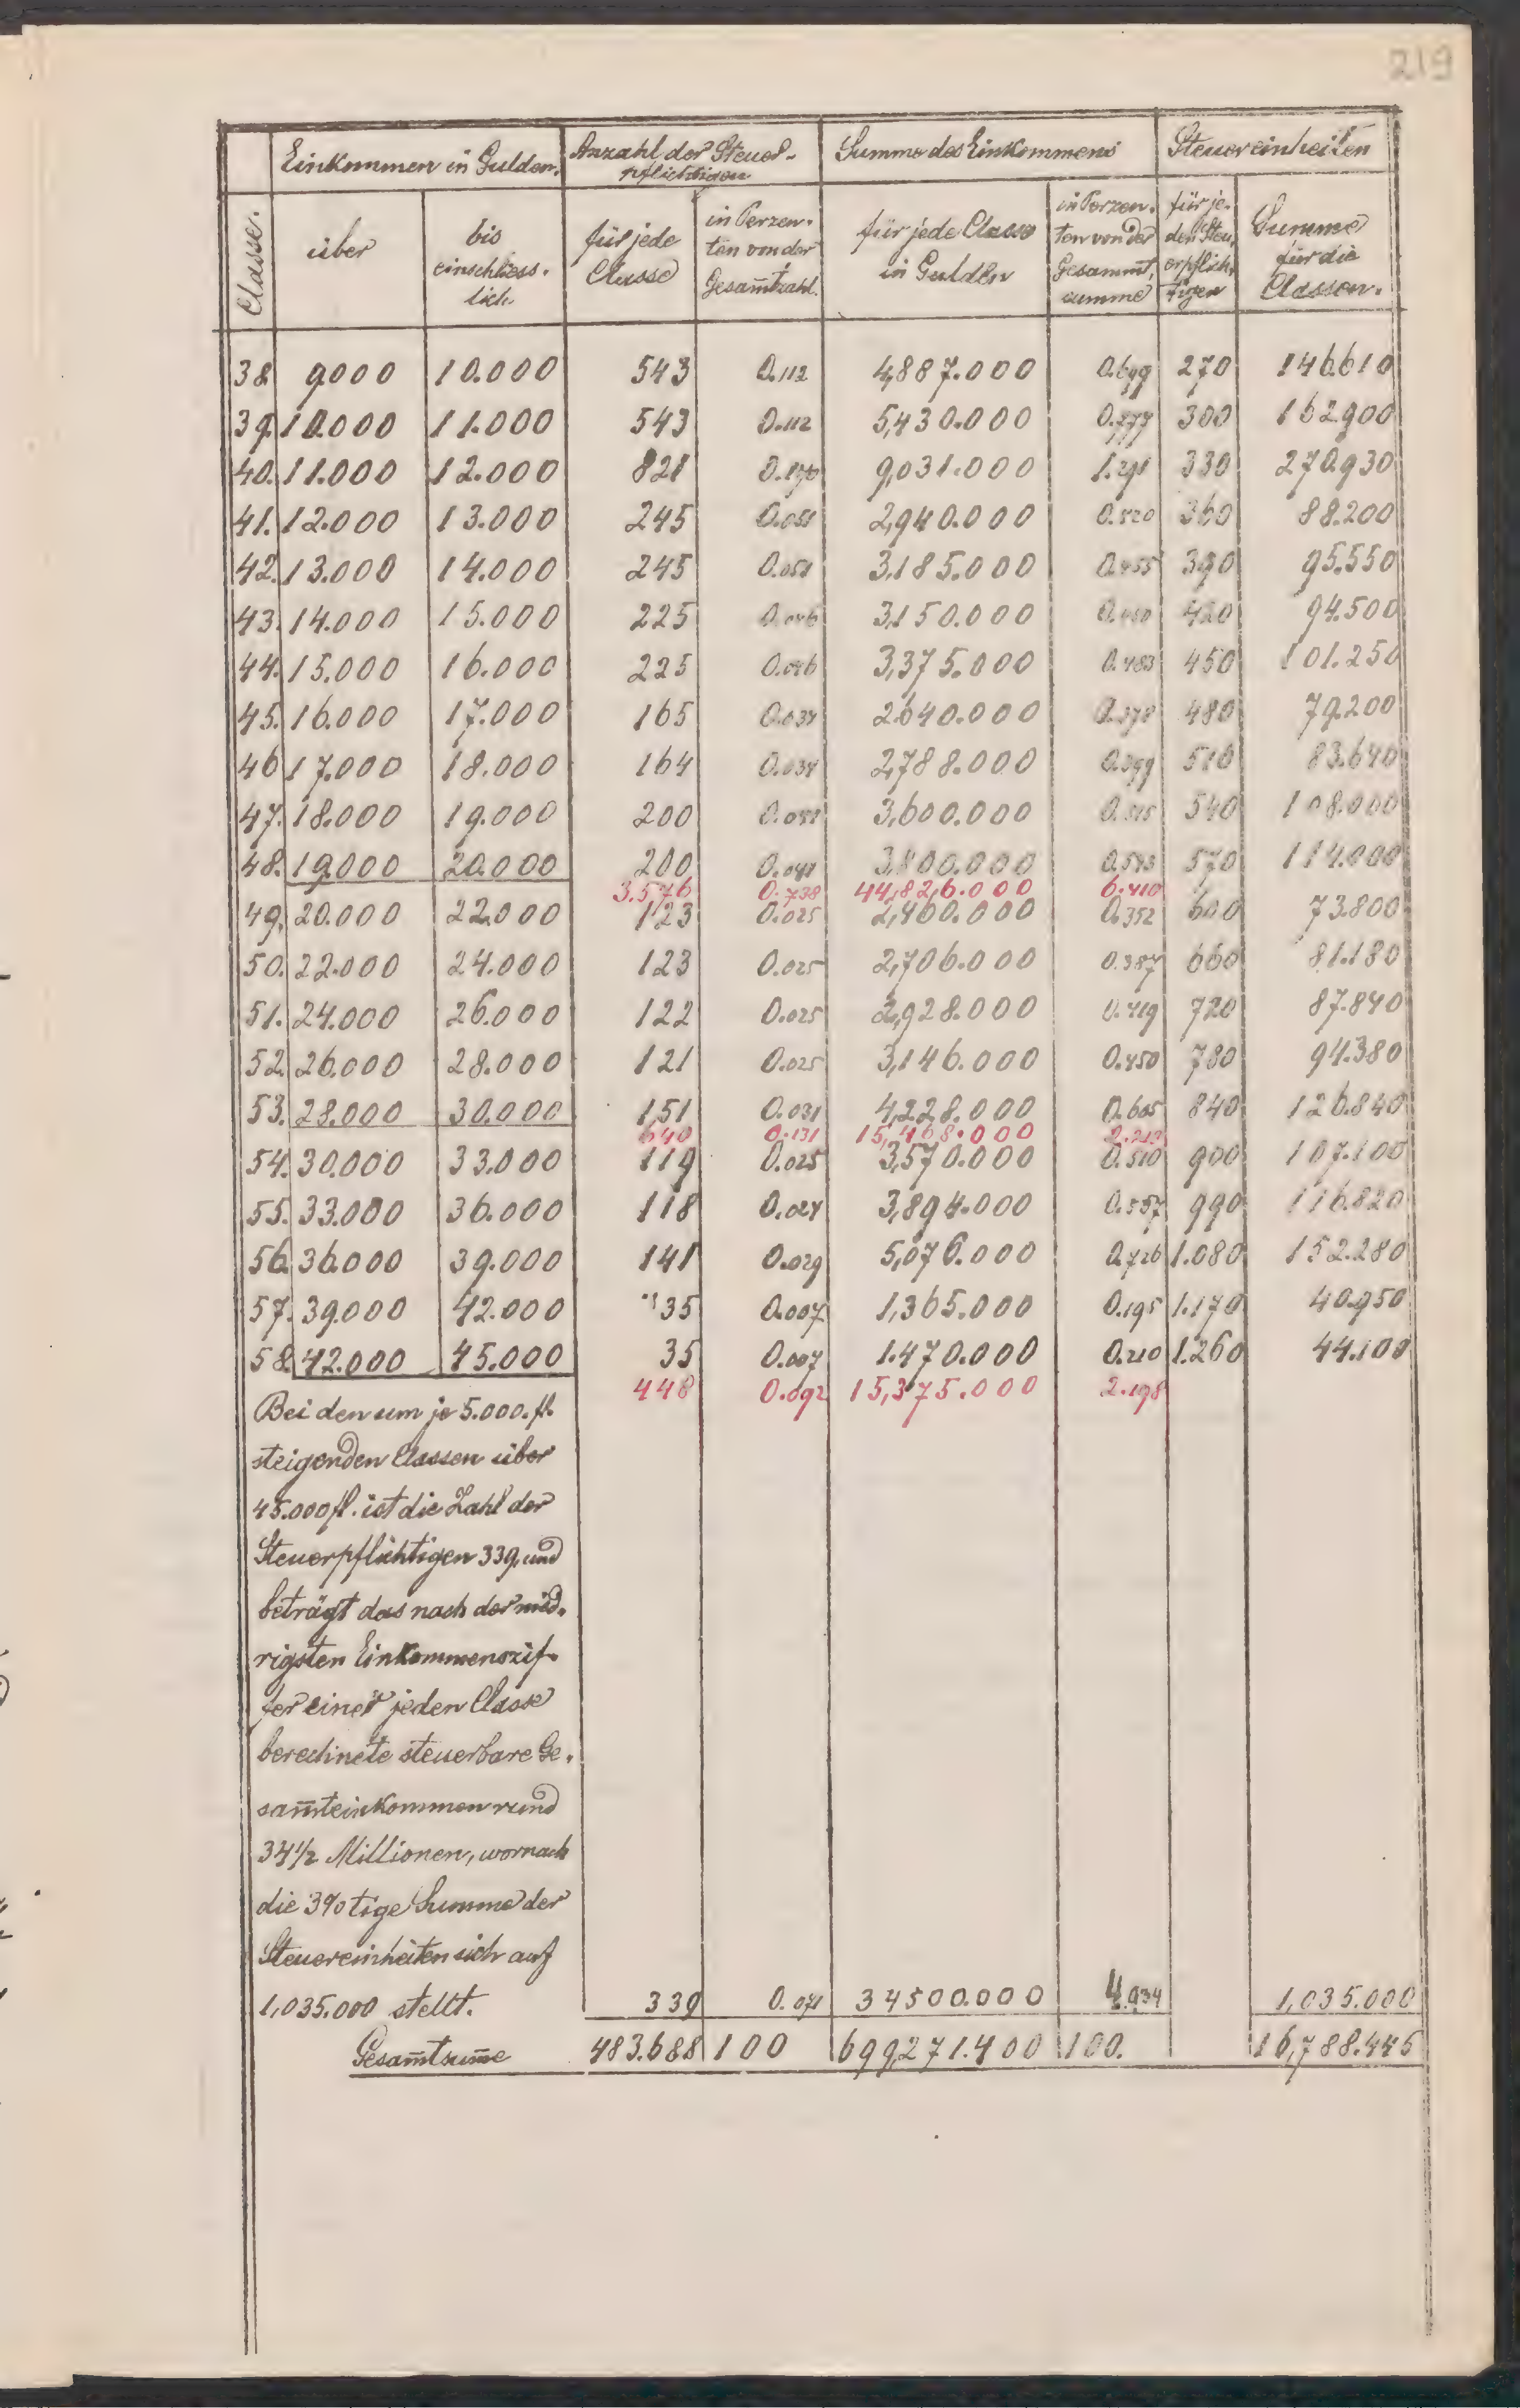 219
Einkommen in Gulden. Anzahl der Steuer- Summe des Einkommens Steuereinheiten
pflichtigen
Classe. über bis einschliess. lich für jede Classe in Perzen. ten von der Gesam̅tzahl. für jede Classe in Gulden in Perzen. ten von der Gesammt, summe für je. den Steu, erpflich, tigen Summe für die Classen.
38 9000 10.000 543 0.112 4,887.000 0.699 270 146610
39. 10.000 11.000 543 0.112 5,430.000 0.777 300 162.900
40. 11.000 12.000 821 0.170 9,031.000 1.291 330 270.930
41. 12.000 13.000 245 0.051 2,940.000 0.420 360 88.200
42. 13.000 14.000 245 0.051 3,185.000 0.455 390 95.550
43. 14.000 15.000 225 0.046 3,150.000 0.450 420 94.500
44. 15.000 16.000 225 0.046 3,375.000 0.483 450 101.250
45. 16.000 17.000 165 0.034 2640.000 0.378 480 79.200
46 17.000 18.000 164 0.034 2,788.000 0.399 510 83.640
47. 18.000 19.000 200 0.041 3,600.000 0.515 540 108.000
48. 19.000 20.000 200 0.041 3,800.000 0.543 570 114.000
3.576 0.738 44,826.000 6.410
49. 20.000 22.000 123 0.025 2,460.000 0.352 600 73.800
50. 22.000 24.000 123 0.025 2,706.000 0.387 660 81.180
51. 24.000 26.000 122 0.025 2,928.000 0.419 720 87.840
52. 26.000 28.000 121 0.025 3,146.000 0.450 780 94.380
53. 28.000 30.000 151 0.031 4,228.000 0.605 840 126.840
640 0.131 15,468.000 2.213
54. 30.000 33.000 119 0.025 3,570.000 0.510 900 107.100
55. 33.000 36.000 118 0.024 3,894.000 0.557 990 116.820
56. 36.000 39.000 141 0.029 5,076.000 0.726 1.080 152.280
57. 39.000 42.000 35 0.007 1,365.000 0.195 1.170 40.950
58. 42.000 45.000 35 0.007 1.470.000 0.210 1.260 44.100
448 0.092 15,375.000 2.198
Bei den um je 5.000. fl.
steigenden Classen über
45.000 fl. ist die Zahl der
Steuerpflichtigen 339, und
beträgt das nach der nied.
rigsten Einkommenszif.
fer einer jeden Classe
berechnete steuerbare Ge.
sam̅teinkommen rund
34 1/2 Millionen, wornach
die 3%tige Summe der
Steuereinheiten sich auf
1,035.000 stellt. 339 0.071 34500.000 4.934 1,035.000
Gesam̅tsum̅e 483.688 100 699,271.400 100. 16,788.445